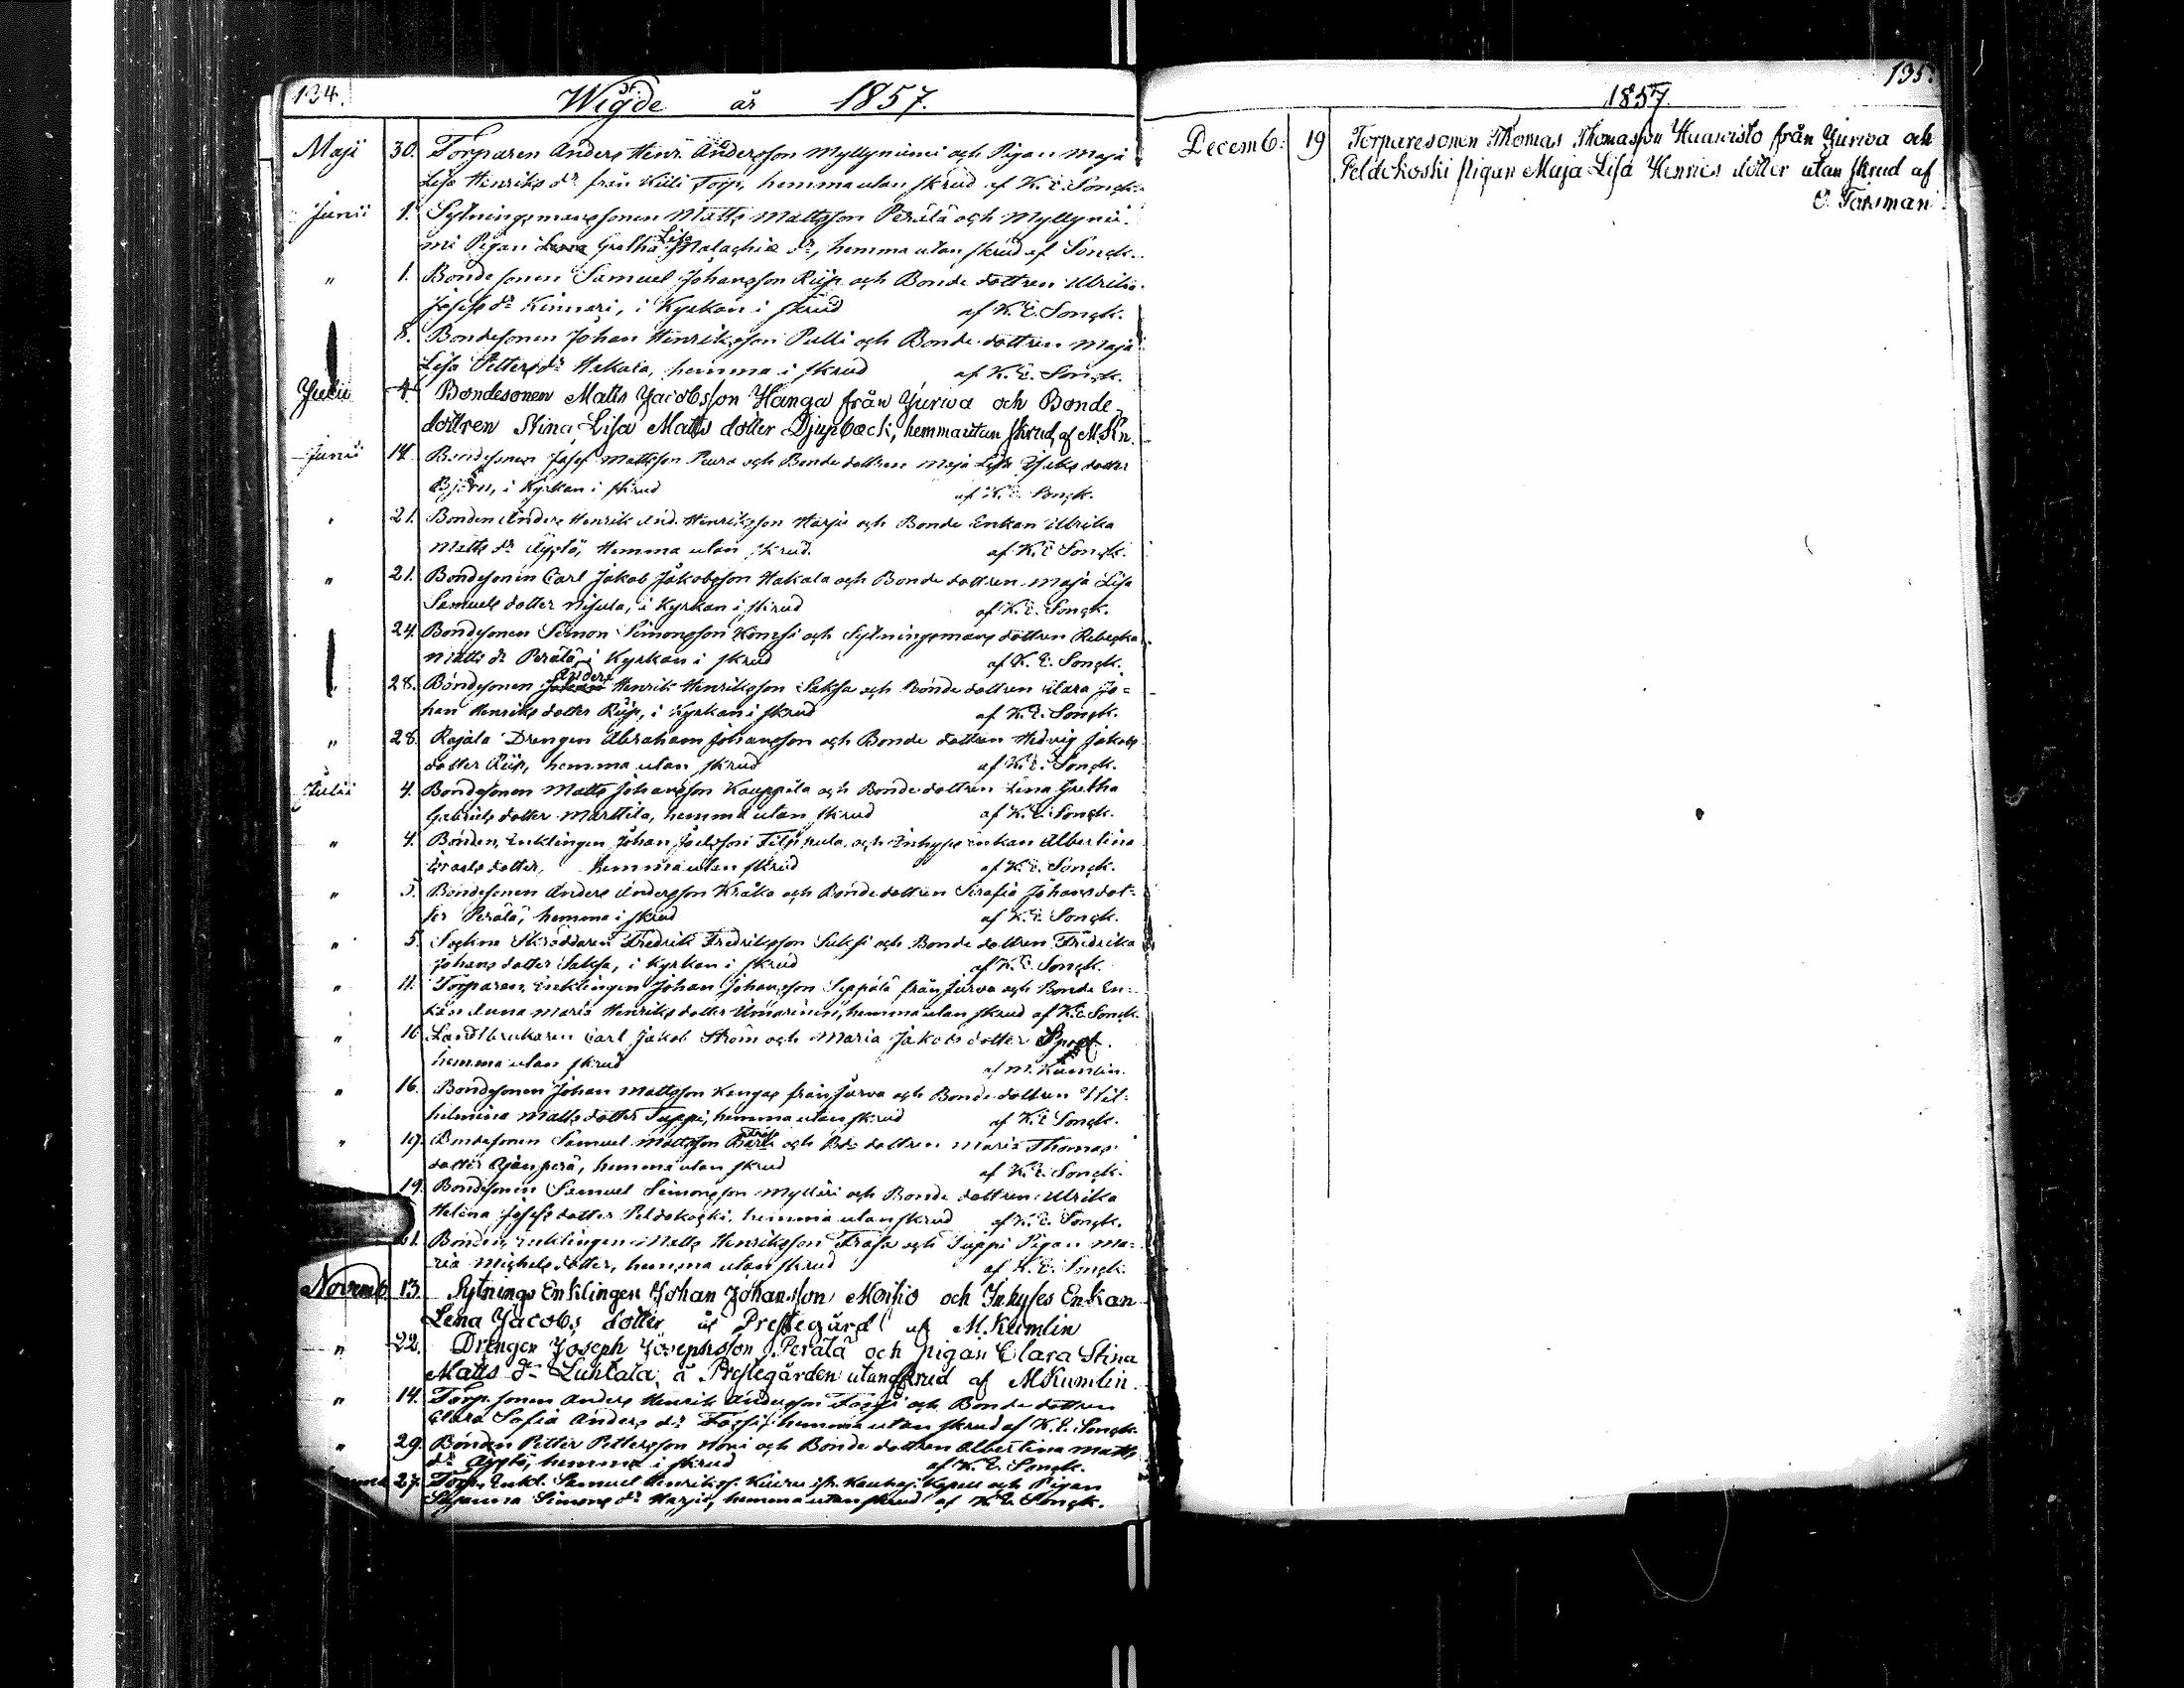 134.
Wigde år 1857.
Maji 30. Torparen Anders Henr. Andersson Myllyniemi och Pigan Maja
Lisa Henriks dr från Kiili Torp, hemma utan skrud af K. E. Sonck.
Junii 1. Sytningsmanssonen Matts Mattsson Perälä och Myllynie-
mi Pigan Gretha Lisa Malachiæ dr, hemma utan skrud af Sonck.
" 1. Bondesonen Samuel Johansson Rüp och Bonde dottren Ulrika
Josefs dr Kinnari, i Kyrkan i skrud af K. E. Sonck.
8. Bondesonen Johan Henriksson Pulli och Bonde dottren Maja
Lisa Petters dr Hakala, hemma i skrud af K. E. Sonck.
Julii 4. Bondesonen Matts Jacobsson Hanga från Jurwa och Bonde-
dottren Stina Lisa Matts dotter Djupbäck, hemma utan skrud, af M. Kn.
Junii 14. Bondesonen Josef Mattsson Peura och Bonde dottren Maja Lisa dotter
Björn, i Kyrkan i skrud af K. E. Sonck.
21. Bonden Anders Henrik And. Henriksson Harju och Bonde Enkan Ulrika
Matts dr Äystö, Hemma utan skrud. af K. E. Sonck.
" 21. Bondesonen Carl Jakob Jakobsson Hakala och Bonde dottren Maja Lisa
Samuels dotter Nisula, i Kyrkan i skrud af K. E. Sonck.
24. Bondesonen Simon Simonsson Könsi och Sytningsmans dottren Rebecka
Matts dr Perälä, i Kyrkan i skrud af K. E. Sonck.
28. Bondesonen Anders Henrik Henriksson Saksa och Bonde dottren Clara Jo-
han Henriks dotter Rüp, i Kyrkan i skrud af K. E. Sonck.
" 28. Rajala Drengen Abraham Johansson och Bonde dottren Hedvig Jakobs
dotter Rüp, hemma utan skrud af K. E. Sonck.
Julii 4. Bondesonen Matts Johansson Kauppila och Bonde dottren Lena Gretha
Gabriels dotter Marttila, hemma utan skrud af K. E. Sonck.
" 4. Bonden, Enklingen Johan Joelsson Filppula, och Inhyses enkan Albertina
Israels dotter, hemma utan skrud af K. E. Sonck.
" 5. Bondesonen Anders Andersson Kråka och Bonde dottren Serafia Johans dot-
ter Perälä, hemma i skrud af K. E. Sonck.
" 5. Sockne Skräddaren Fredrik Fredriksson Suksi och Bonde dottren Fredrika
Johans dotter Saksa, i Kyrkan i skrud af K. E. Sonck.
" 11. Torparen, Enklingen Johan Johansson Seppälä från Jurva och Bonde En-
kan Anna Maria Henriks dotter, hemma utan skrud af K. E. Sonck.
" 16 Landtbrukaren Carl Jakob Ström och Maria Jakobs dotter
hemma utan skrud af M. Kumlin.
" 16. Bondesonen Johan Mattsson Kangas från Jurva och Bonde dottren Wil-
helmina Matts dotter Tuppi, hemma utan skrud af K. E. Sonck.
" 19. Bondesonen Samuel Mattsson och Bde dottren Maria Thomas
dotter, hemma utan skrud af K. E. Sonck.
19. Bondesonen Samuel Simonsson Mylläri och Bonde dottren Ulrika
Helena Josefs dotter Peldokoski, hemma utan skrud af K. E. Sonck.
Bonden, Enklingen Matts Henriksson Frasa och Tuppi Pigan Ma-
ria Michels dotter, hemma utan skrud af K. E. Sonck.
Novemb. 13. Sytnings Enklingen Johan Johansson Moisio och Inhyses Enkan
Lena Jacobs dotter å Prestegård af M. Kumlin
" 22. Drengen Joseph Josephsson Perälä och pigan Clara Stina
Matts dr Luhtala, å Prestegården utan skrud af M Kumlin.
" 14. Torp. sonen Anders Henrik Andersson Fossi och Bonde dottren
Clara Sofia Anders dr Fossi, hemma utan skrud af K. E. Sonck.
" 29. Bonden Petter Pettersson och Bonde dottren Albertina Matts
dr Äystö, hemma i skrud af K. E. Sonck.
27. Torp. Enkl. Samuel Henrikss. Kapell och Pigan
Susanna Simons dr Harju, hemma utan skrud af K. E. Sonck.
135.
1857.
Decemb: 19 Torparesonen Thomas Thomasson Haawisto från Jurwa och
Peldokoski pigan Maja Lisa Henrics dotter utan skrud af
O. Forsman